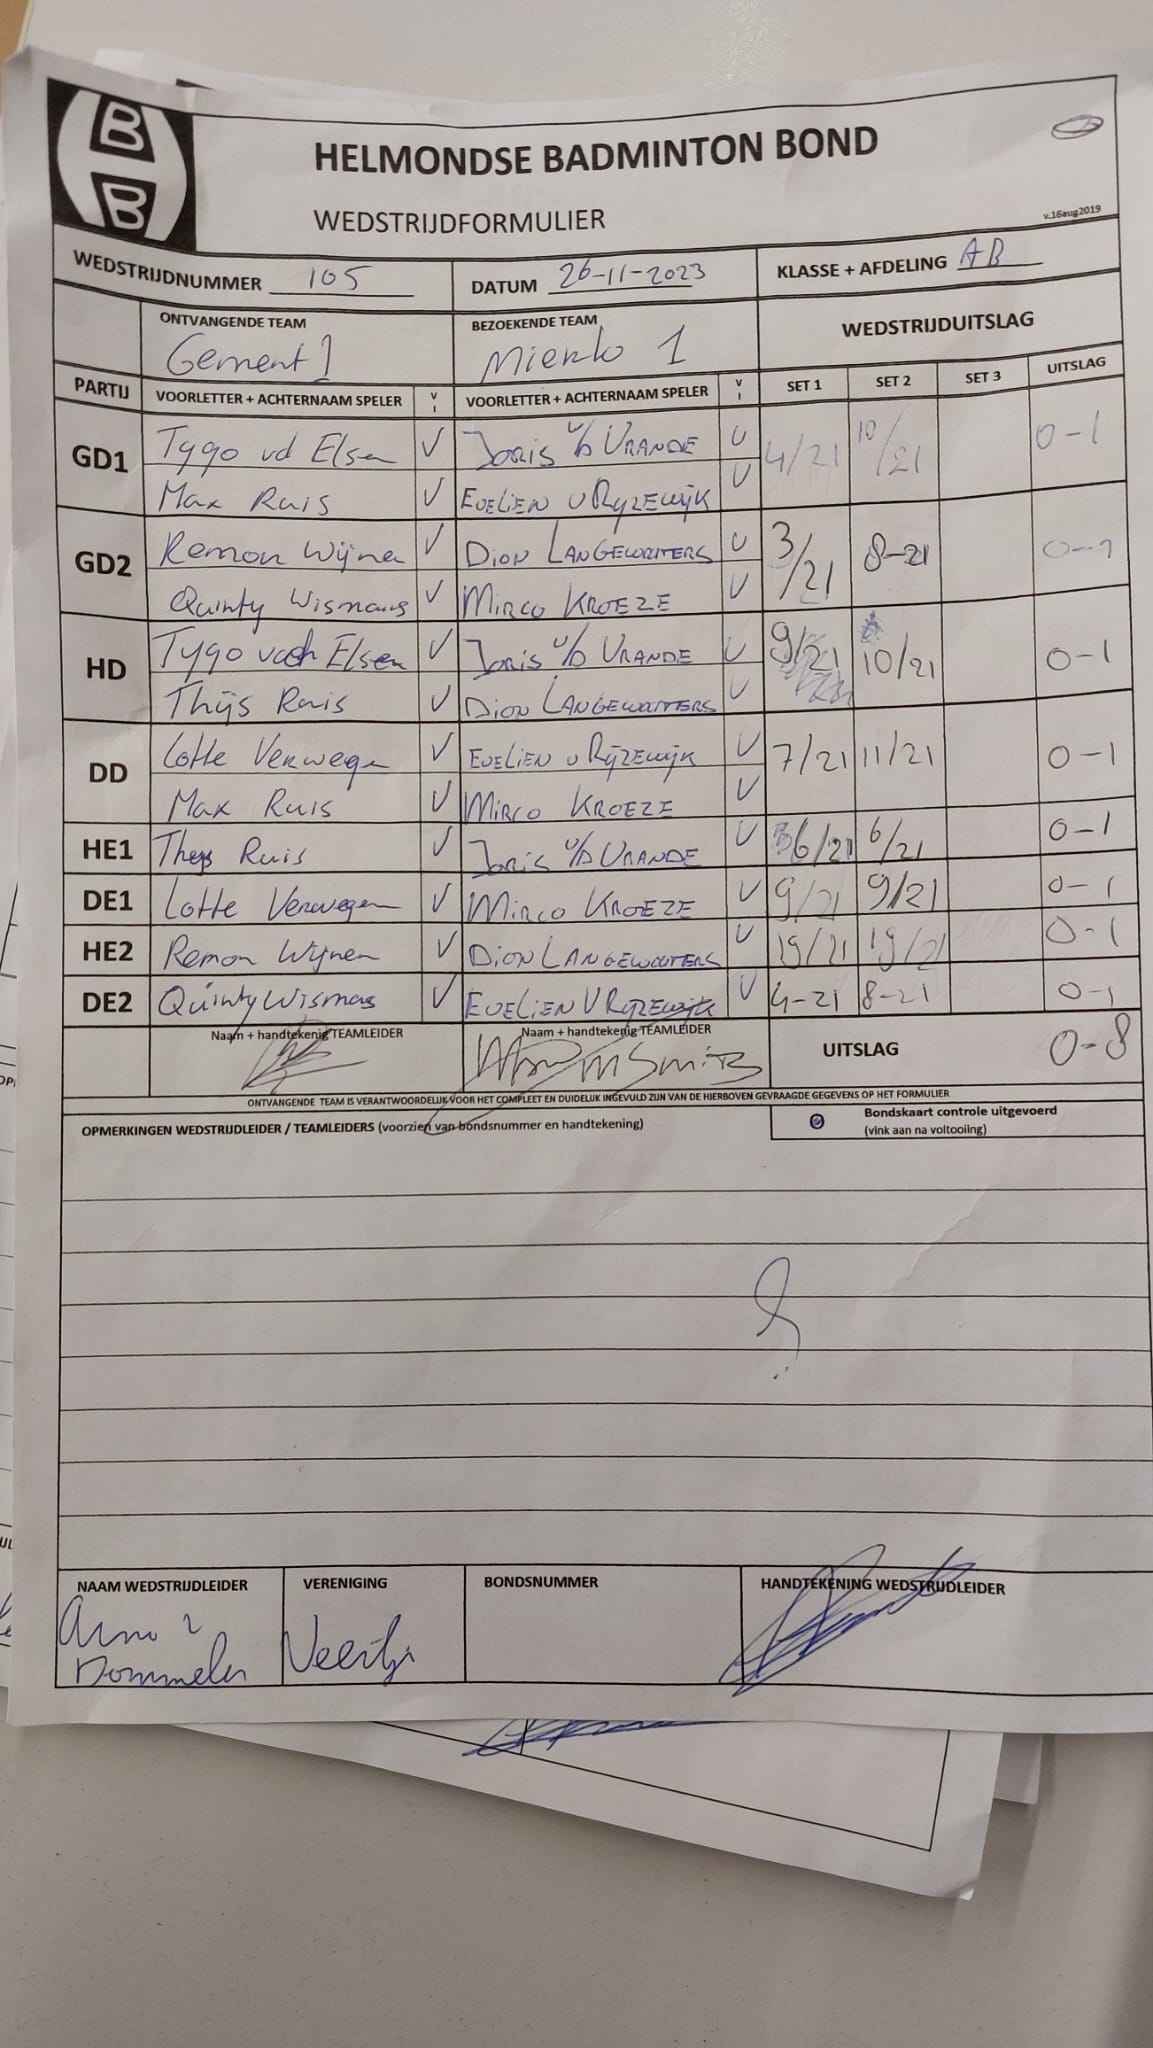 B
B
HELMONDSE BADMINTON BOND
WEDSTRIJDFORMULIER
v.16aug2019
WEDSTRIJDNUMMER 105 DATUM 26-11-2023 KLASSE + AFDELING AB
ONTVANGENDE TEAM BEZOEKENDE TEAM WEDSTRIJDUITSLAG
Gement 1 Mierlo 1
PARTIJ VOORLETTER + ACHTERNAAM SPELER V I VOORLETTER + ACHTERNAAM SPELER V I SET 1 SET 2 SET 3 UITSLAG
GD1 Tygo vd Elsen V Joris v/d VRANDE V 4/21 10/21 0-1
Max Ruis V EVELIEN v RYZEWIJK V
GD2 Remon Wijnen V DION LANGEWOUTERS V 3/21 8-21 0-1
Quinty Wismans V MIRCO KROEZE V
HD Tygo van Elsen V Joris v/d VRANDE V 9/21 10/21 0-1
Thijs Ruis V DION LANGEWOUTERS V
DD Lotte Verwegen V EVELIEN v RIJZEWIJK V 7/21 11/21 0-1
Max Ruis V MIRCO KROEZE V
HE1 Thijs Ruis V Joris v/d VRANDE V 6/21 6/21 0-1
DE1 Lotte Verwegen V MIRCO KROEZE V 9/21 9/21 0-1
HE2 Remon Wijnen V DION LANGEWOUTERS V 19/21 19/21 0-1
DE2 Quinty Wismans V EVELIEN V RIJZEWIJK V 4-21 8-21 0-1
Naam + handtekenig TEAMLEIDER Naam + handtekenig TEAMLEIDER UITSLAG 0-8
ONTVANGENDE TEAM IS VERANTWOORDELIJK VOOR HET COMPLEET EN DUIDELIJK INGEVULD ZIJN VAN DE HIERBOVEN GEVRAAGDE GEGEVENS OP HET FORMULIER
OPMERKINGEN WEDSTRIJDLEIDER / TEAMLEIDERS (voorzien van bondsnummer en handtekening) Bondskaart controle uitgevoerd
(vink aan na voltooiing)
NAAM WEDSTRIJDLEIDER VERENIGING BONDSNUMMER HANDTEKENING WEDSTRIJDLEIDER
Arno v
Dommelen